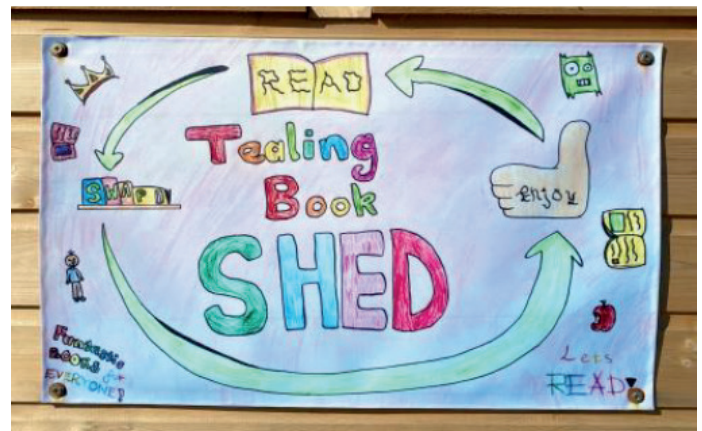 READ
Tealing
Book
SHED
SWAP
enjoy
Fantastic
BOOKS for
EVERYONE!
Lets
READ